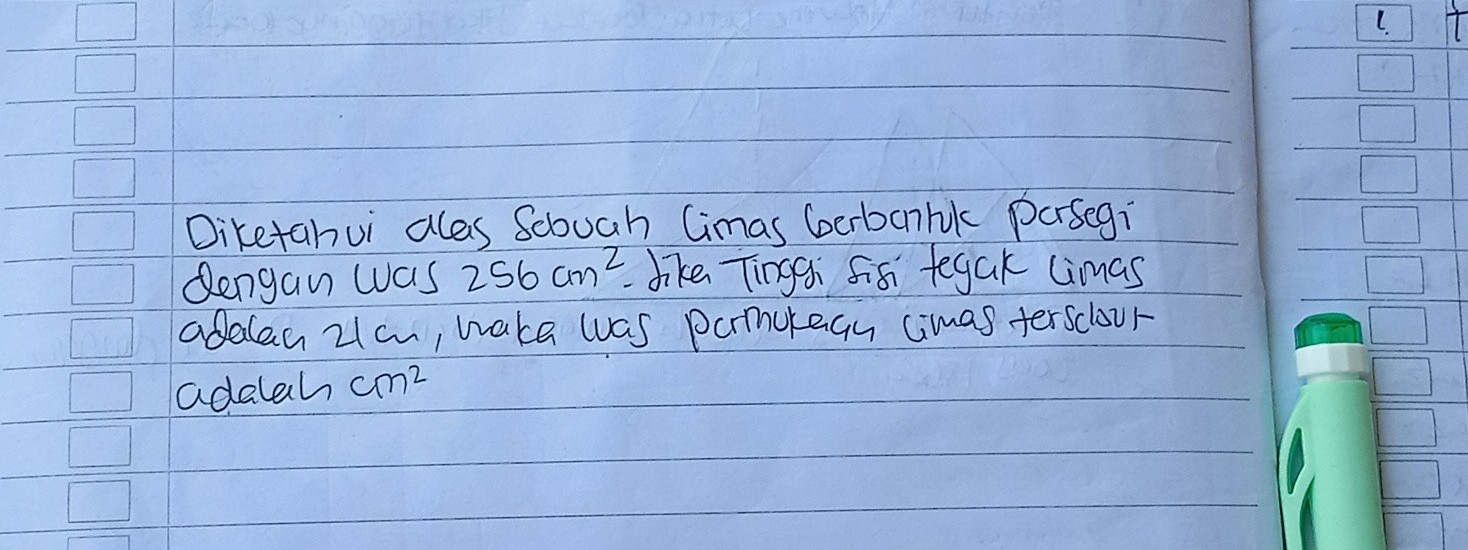 Diketahui alas Sebuah limas berbentuk persegi
dengan luas 256 cm². Jika Tinggi sisi tegak limas
adalah 21 cm, maka luas permukaan limas tersebut
adalah cm²